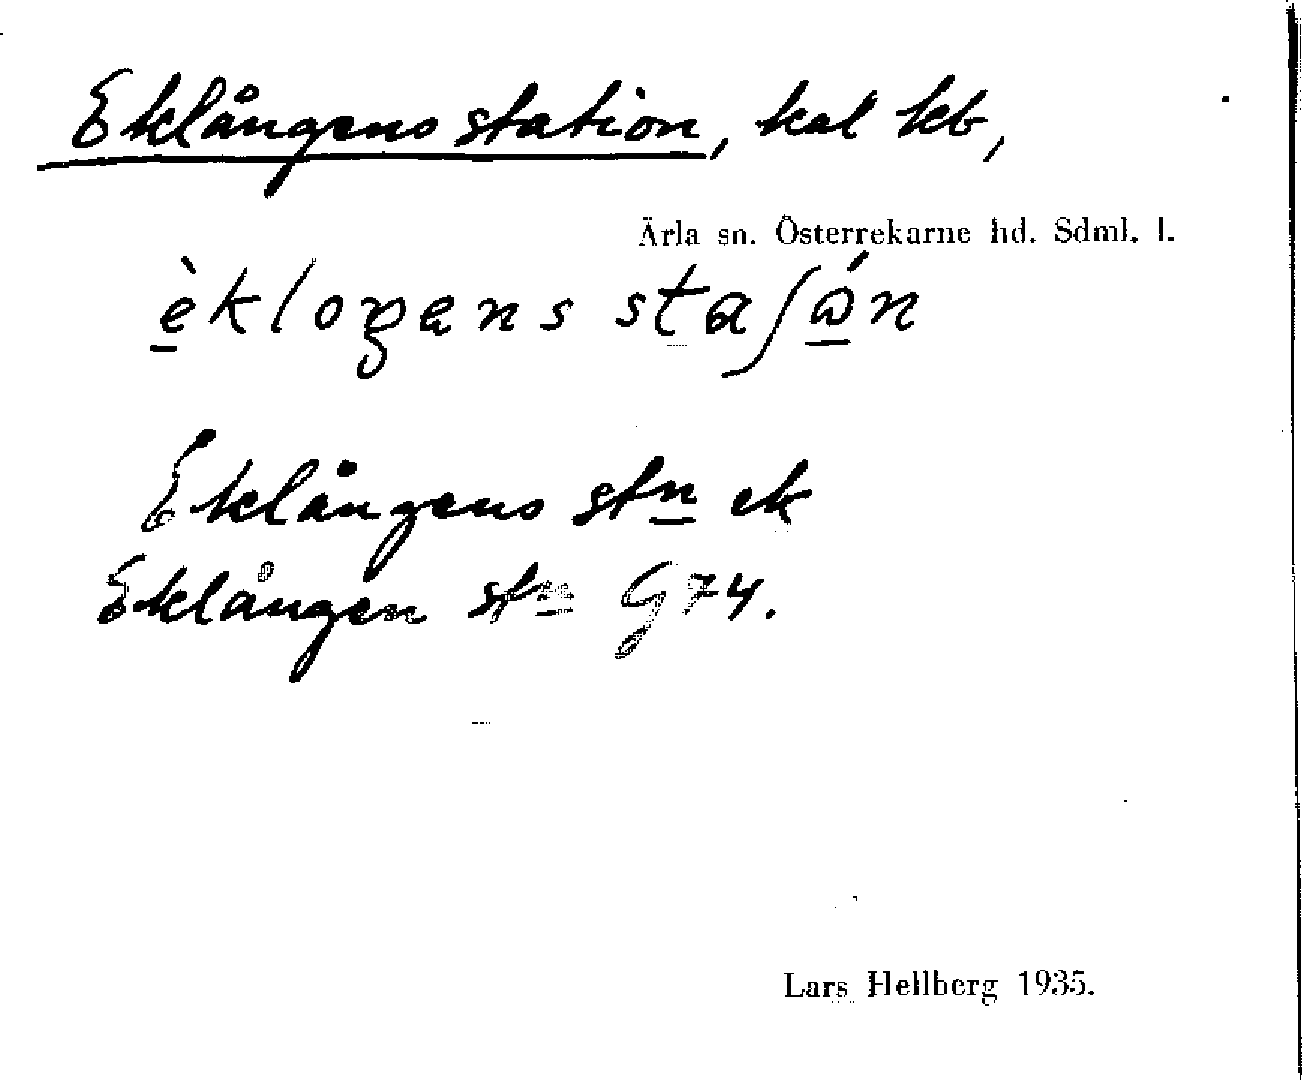 Eklångens station, kal kb,
Ärla sn. Österrekarne hd. Sdml. l.
è̱kloŋens staʃɷ̱́n
Eklångens stn ek
Eklången stn G 74.
Lars Hellberg 1935.